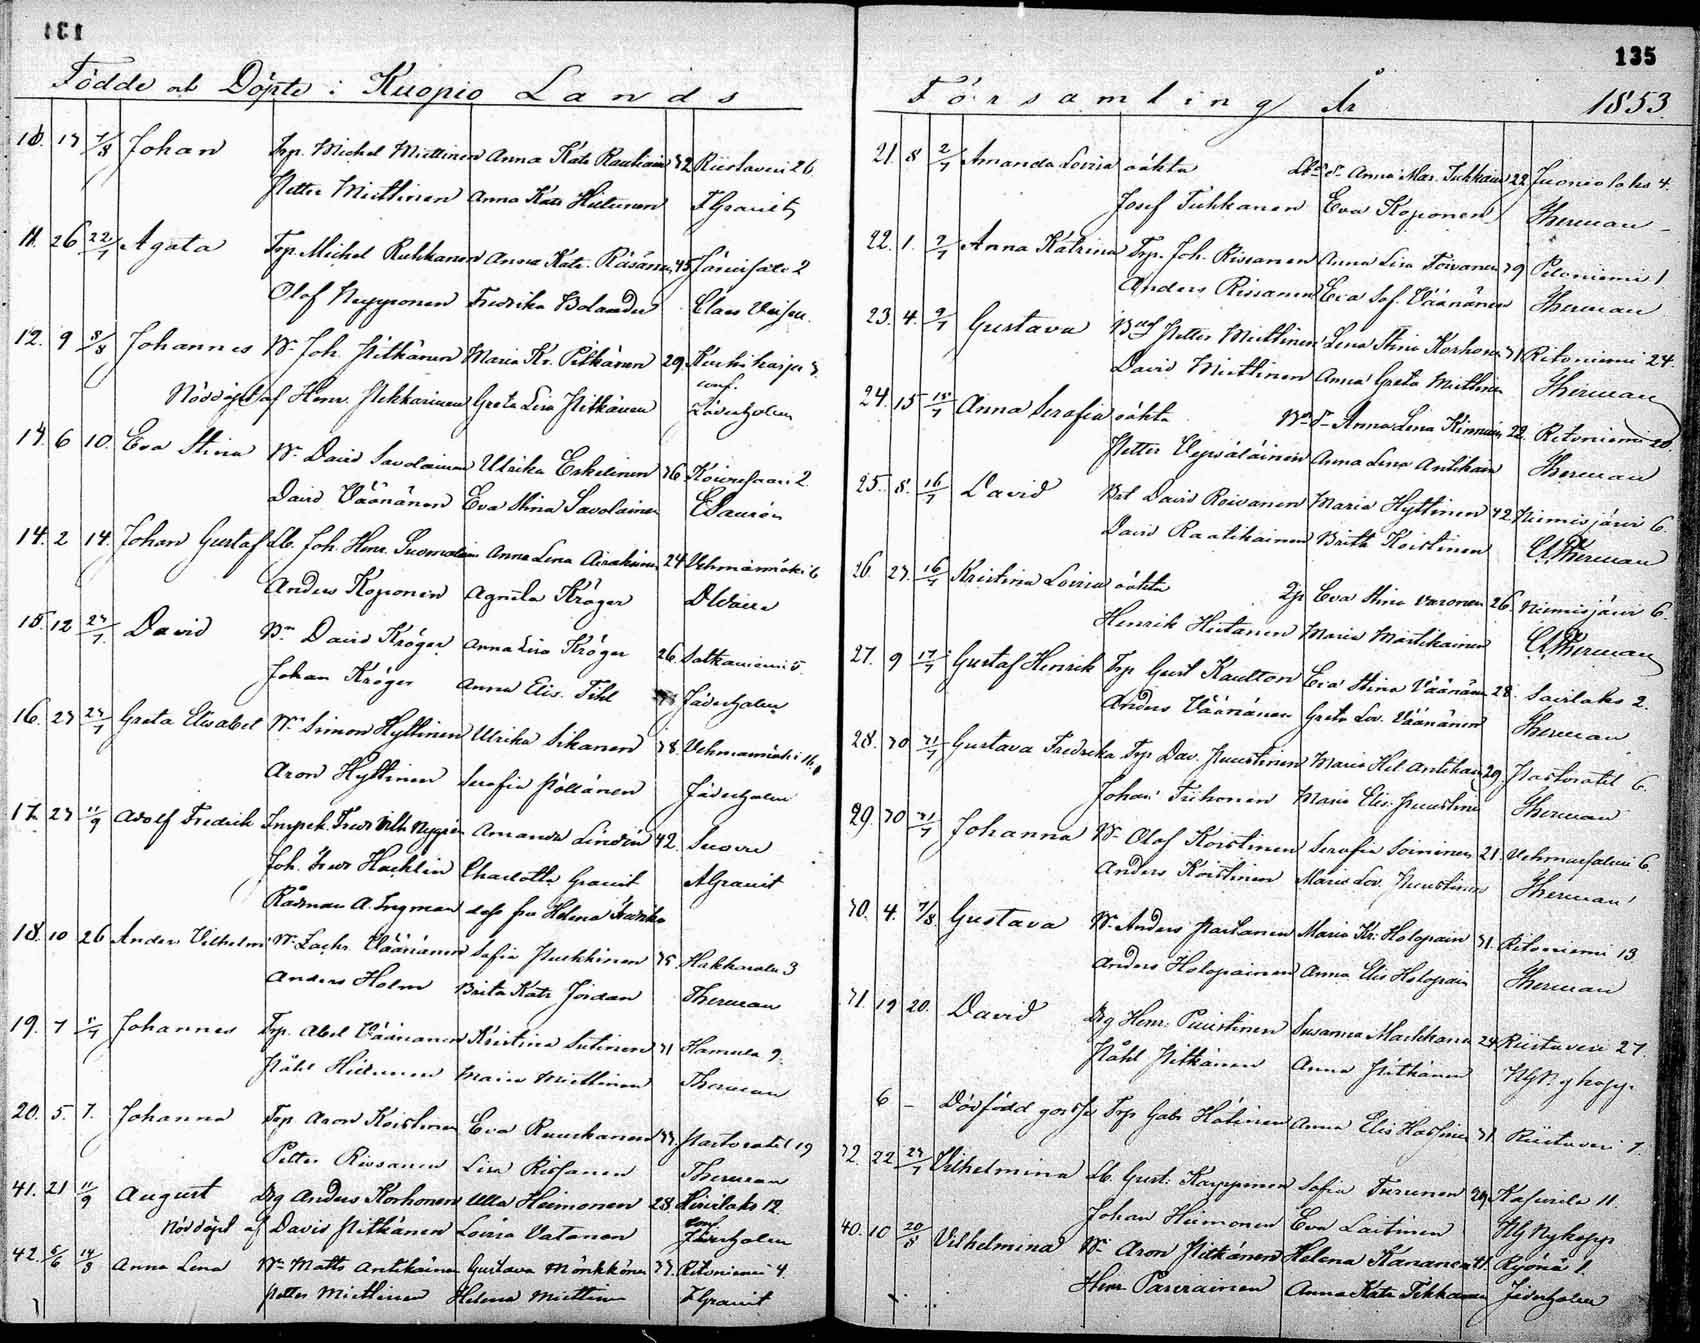 131
Födde och Döpte i Kuopio Lands
10. 17 7/8 Johan Trp. Michel Miettinen Anna Kats Rautiain 32 Riistavesi 26
Petter Miettinen Anna Kats Hiltunen F Granit
11. 26 22/7 Agata Trp. Michel Ruhkanen Anna Kats. Räsänen 45 Jänissalo 2
Olof Nepponen Fredrika Bolander Claes
12. 9 8/8 Johannes Bd Joh. Pitkänen Maria Kr. Pitkänen 29 3.
Nöddöpt af Henr. Pekkarinen Greta Lisa Pitkänen conf. Jäderholm
14. 6 10. Eva Stina Bd David Savolainen Ulrika Eskelinen 36 Koivusaari 2.
David Väänänen Eva Stina Savolainen E Saurén
14. 2 14. Johan Gustaf Lb. Joh. Henr. Suomalain Anna Lena Airaksinen 24 Vehmasmäki 6
Anders Koponen Agneta Kröger
15. 12 27/7. David Bn David Kröger Anna Lisa Kröger 26. Sotkaniemi 5.
Johan Kröger Anna Elis. Fihl Jäderholm
16. 23 27/7 Greta Elisabet Bn Simon Hyttinen Ulrika Sikanen 38. Vehmasmäki 16.
Aron Hyttinen Serafia Pöllänen Jäderholm
17. 23 11/9 Adolf Fredrik Inspek. Fredr Vilh Amanda Lindén 42.
Joh. Fredr Hachlin Charlotta Granit A Granit
Rådman A. Ingman dess fru Helena Fredrika
18. 10 26 Anders Vilhelm Bd Zachr. Väänänen Sofia Puckkinen 35 Hakkarala 3
Anders Holm Brita Kats Jordan Therman
19. 7 Johannes Trp. Abel Väänänen Kristina Sutinen 31 Hamula 9.
Påhl Hiltunen Maria Miettinen Therman
20. 5. 7. Johanna Trp Aron Koistinen Eva Ruuskanen 33. Pastoratet 19
Petter Rissanen Lisa Rissanen Therman
41. 21 11/9 August Dg Anders Korhonen Ulla Heimonen 28. Hirvilaks 12.
Nöddöpt af David Pitkänen Lovisa Vatanen conf. Jäderholm
42. 5/6 14/8 Anna Lena Bd Matts Antikainen Gustava Mönkköne 33. Ritoniemi 4.
Petter Miettinen Helena Miettin F Granit
135
Församling År 1853.
21. 8 2/7 Amanda Lovisa oäkta Anna Mar. Tuhkan 22 Juonionlaks 4.
Josef Tuhkanen Eva Koponen Therman
22. 1. 2/7 Anna Katrina Trp. Joh. Rissanen Anna Lisa Toivanen 39 Pitoniemi 1
Anders Rissanen Eva Sof. Väänänen Therman
23. 4. 9/7 Gustava Petter Miettinen Lena Stina Korhone 31 Ritoniemi 24.
David Miettinen Anna Greta Miettinen Therman
24. 15 15/7 Anna Serafia oäkta Anna Lena Kinnunen 22. Ritoniemi 20.
Petter Vepsäläinen Anna Lena Antikain Therman
25. 8. 16/7 David Bd David Roivanen Maria Hyttinen 42 Niemisjärvi 6.
David Raatikainen Brita Koistinen Therman
26. 27. 16/7 Kristina Lovisa oäkta Pg Eva Stina Varonen 26. Niemisjärvi 6.
Henrik Hutanen Maria Martikainen Therman
27. 9 17/7 Gustaf Henrik Trp Gust Kaulton Eva Stina Väänänen 28. Savilaks 2.
Anders Väänänen Greta Lov. Väänänen Therman
28. 30 31/7 Gustava Fredrika Trp Dav. Puustinen Maria Hel. Antikain 29. Pastoratet 6.
Johan Tirhonen Maria Elis. Puustine Therman
29. 30 31/7 Johanna Bd Olof Koistinen Serafia Soininen 21. Vehmasalmi 6.
Anders Koistinen Maria Lov. Puustinen Therman
30. 4. 7/8 Gustava Bd Anders Partanen Maria Kr. Holopain 31. Ritoniemi 13
Anders Holopainen Anna Elis Holopain Therman
31. 19 20. David Dg Henr. Puustinen Susanna Markkane 24 Riistavesi 27
Påhl Pitkänen Anna Pitkänen
6 — Dödfödd gosse Trp Gabr Hötinen Anna Elis Hassine 31. Riistavesi 7.
32. 22 27/7 Vilhelmina Lb. Gust. Karppinen Sofia Turunen 39. Kasurila 11.
Johan Heimonen Eva Laitinen Nykopp
40. 10 20/8 Vilhelmina Bd Aron Pitkänen Helena Kananen 41. Ryönä 1
Henr Parviainen Anna Kats Tikkanen Jäderholm